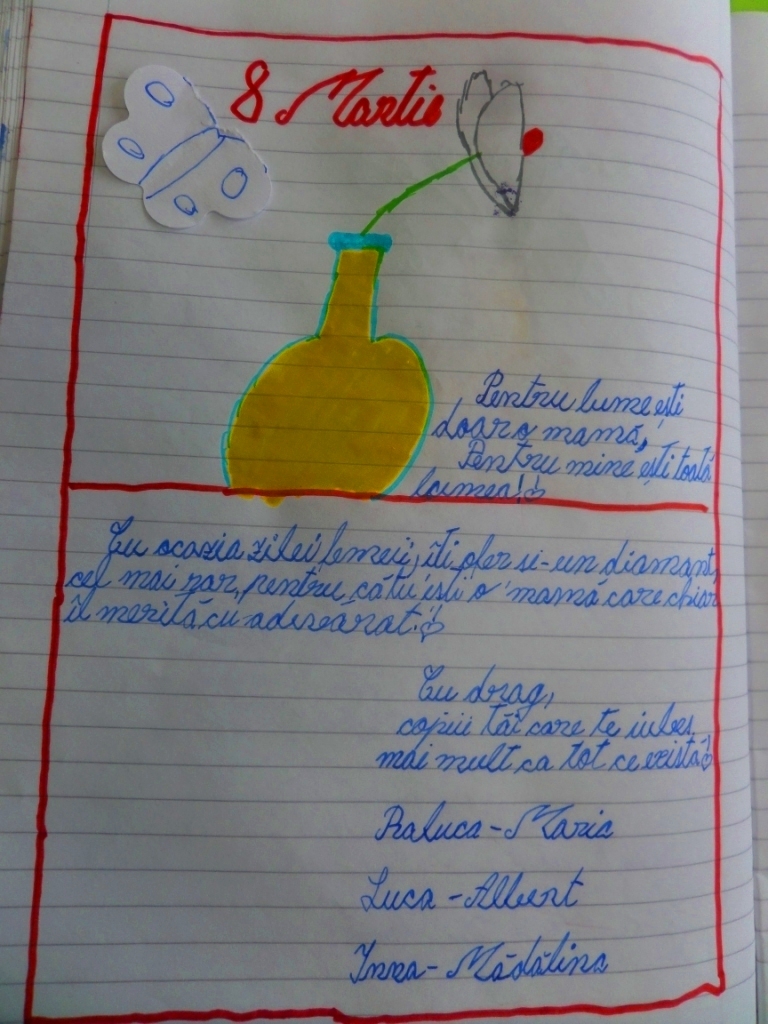 8 Martie
Pentru lume ești
doar o mamă,
Pentru mine ești toată
lumea!
Cu ocazia zilei femeii, îți ofer și-un diamant,
cel mai rar, pentru că tu ești o mamă care chiar
îl merită cu adevărat!
Cu drag,
copiii tăi care te iubesc
mai mult ca tot ce există!
Raluca-Maria
Luca-Albert
Inna-Mădălina